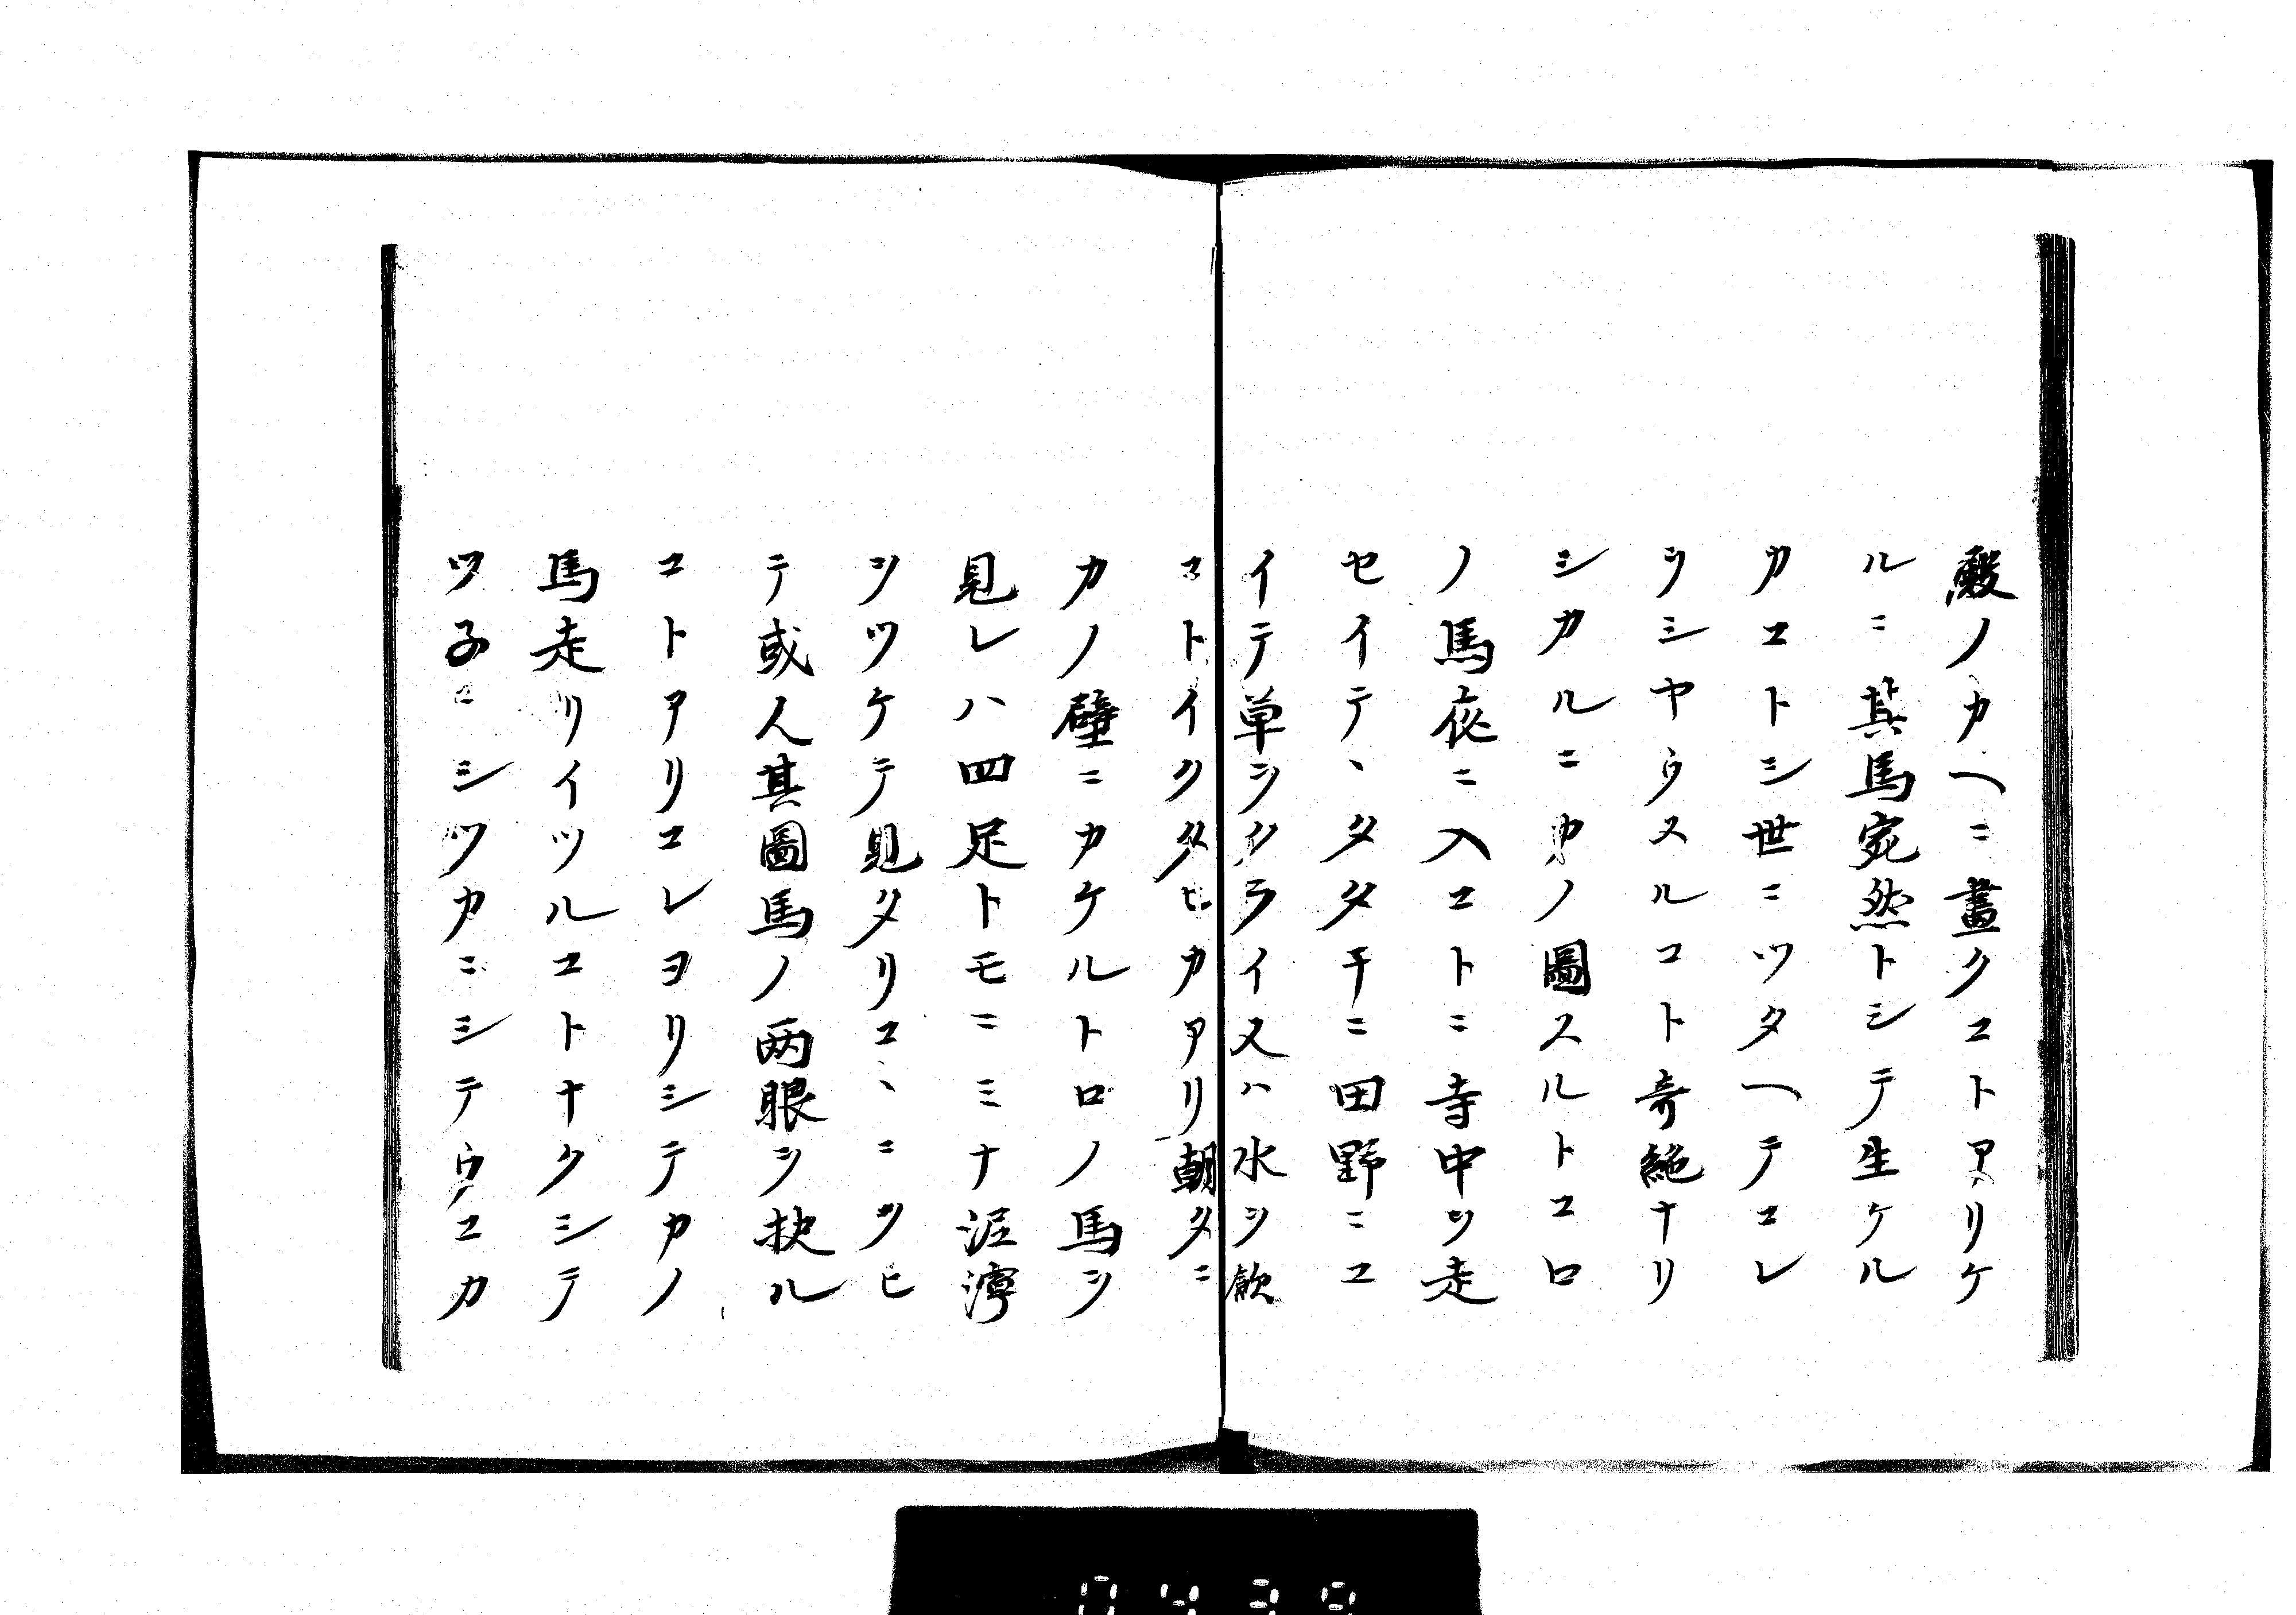 殿ノカヘニ畫クコトアリケ
ルニ其馬宛然トシテ生ケル
カコトシ世ニツタヘテコレ
ヲシヤウスルコト奇絶ナリ
シカルニカノ圖スルトコロ
ノ馬夜ニ入コトニ寺中ヲ走
セイテヽタタチニ田野ニユ
イテ草ヲクライ又ハ水ヲ飲
コトイクタヒカアリ朝タニ
カノ壁ニカケルトロノ馬ヲ
見レハ四足トモニミナ泥濘
ヲツケテ見タリコヽニヲヒ
テ或人其圖馬ノ両眼ヲ抉ル
コトアリコレヨリシテカノ
馬走リイツルコトナクシテ
ツ子ニシツカニシテウコカ
0439